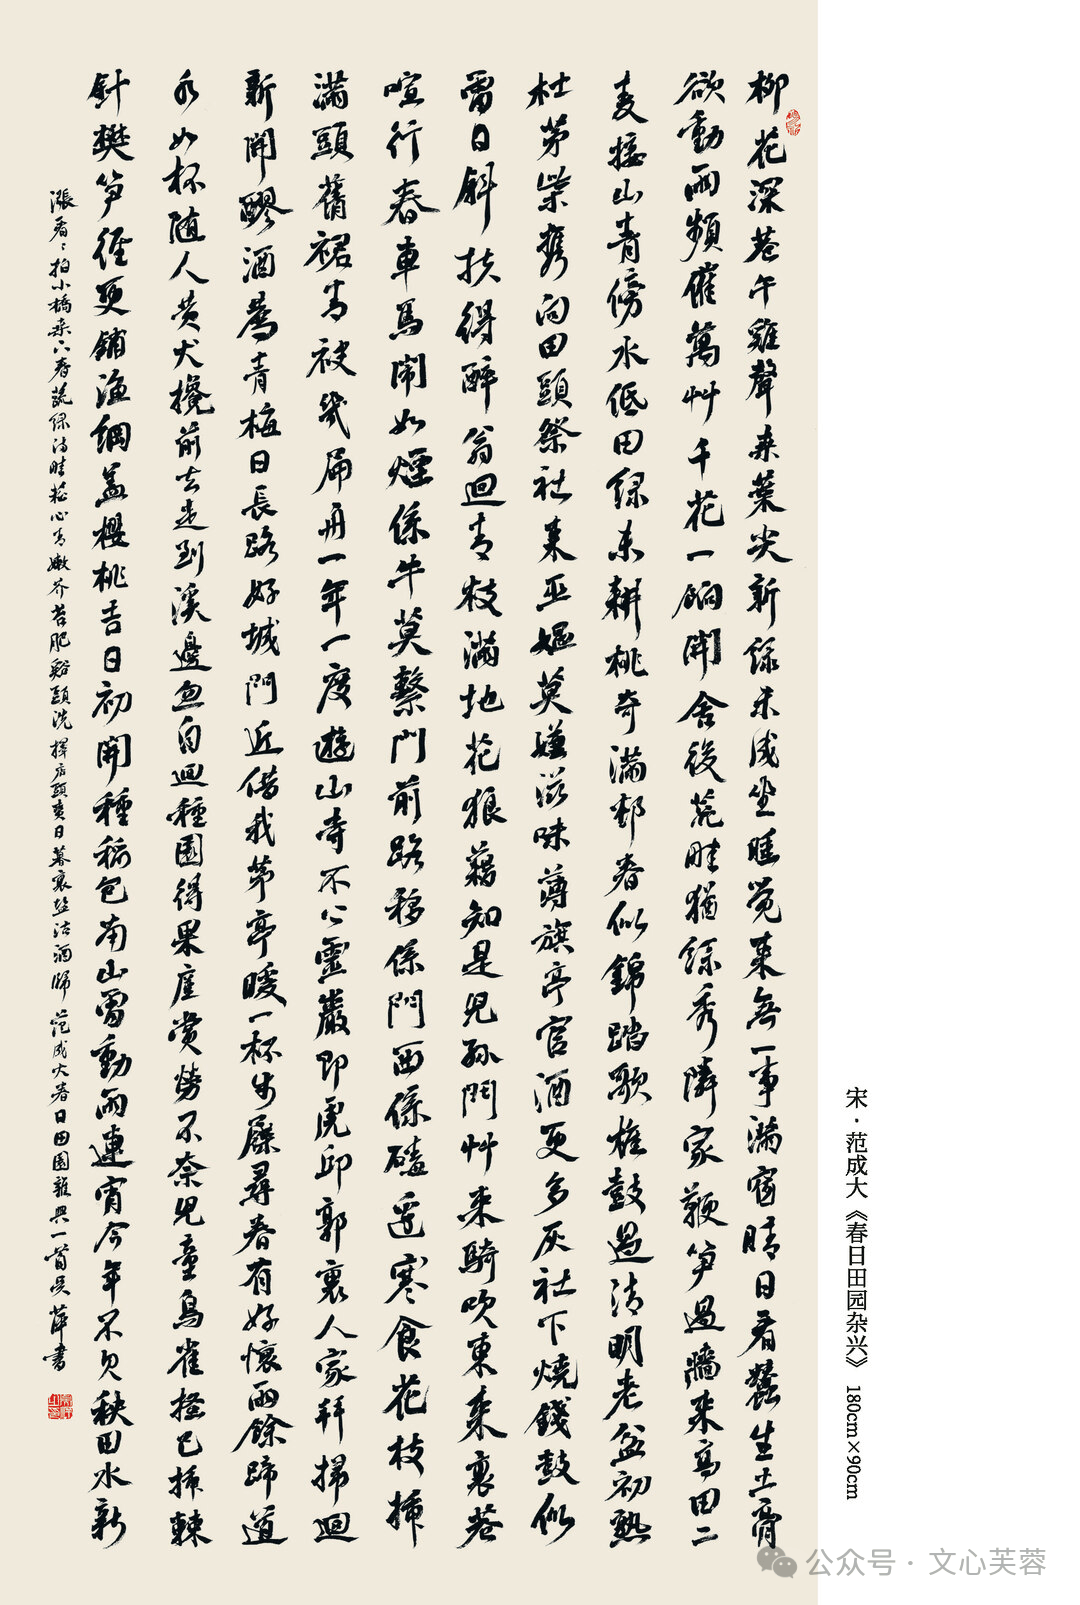 柳花深巷午雞聲桒葉尖新綠未成坐睡覺來無一事滿窗晴日看蠶生土膏
欲動雨頻催萬艸千花一餉開舍後荒畦猶綠秀隣家鞭笋過牆來高田二
麦接山青傍水低田綠未耕桃杏滿邨春似錦踏歌椎鼓過清明老盆初熟
杜茅柴携向田頭祭社來巫媪莫嫌滋味薄旗亭官酒更多灰社下燒錢鼓似
雷日斜扶得醉翁迴青枝滿地花狼藉知是兒孫鬥艸來騎吹東來裏巷
喧行春車馬鬧如煙係牛莫繫門前路移係門西係碡邊寒食花枝插
滿頭蒨裙青被幾扁舟一年一度遊山寺不上靈巖即虎邱郭裏人家拜掃迴
新開醪酒薦青梅日長路好城門近借我茅亭暖一杯步屧尋春有好懷雨餘蹄道
水如杯隨人黄犬攙前去走到溪邊忽自迴種園得果廑賞勞不奈兒童鳥雀搔已插棘
針樊笋徑更鋪漁網蓋櫻桃吉日初開種稻包南山雷動雨連宵今年不欠秧田水新
漲看看拍小橋桒下春蔬綠滿畦菘心青嫩芥苔肥谿頭洗擇店頭賣日暮裹鹽沽酒歸 范成大春日田園雜興一首吴萍書
宋·范成大《春日田园杂兴》 180cm×90cm
公众号·文心芙蓉